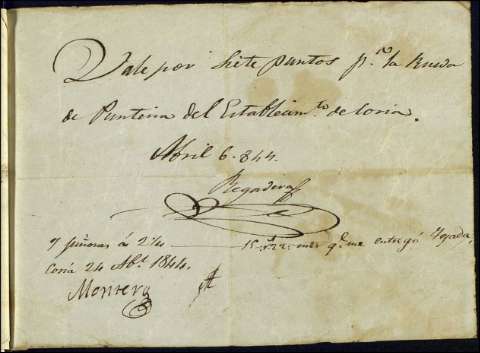 Vale por Siete puntos pª. la Rueda
de Punteria del Establecimto. de Coria.
Abril 6. 844.
Regadera
7 á 2¼ 15 rs. 22 ms. qe. me entregó Tejada,
Coria 24 Abl. 1844.
Montero